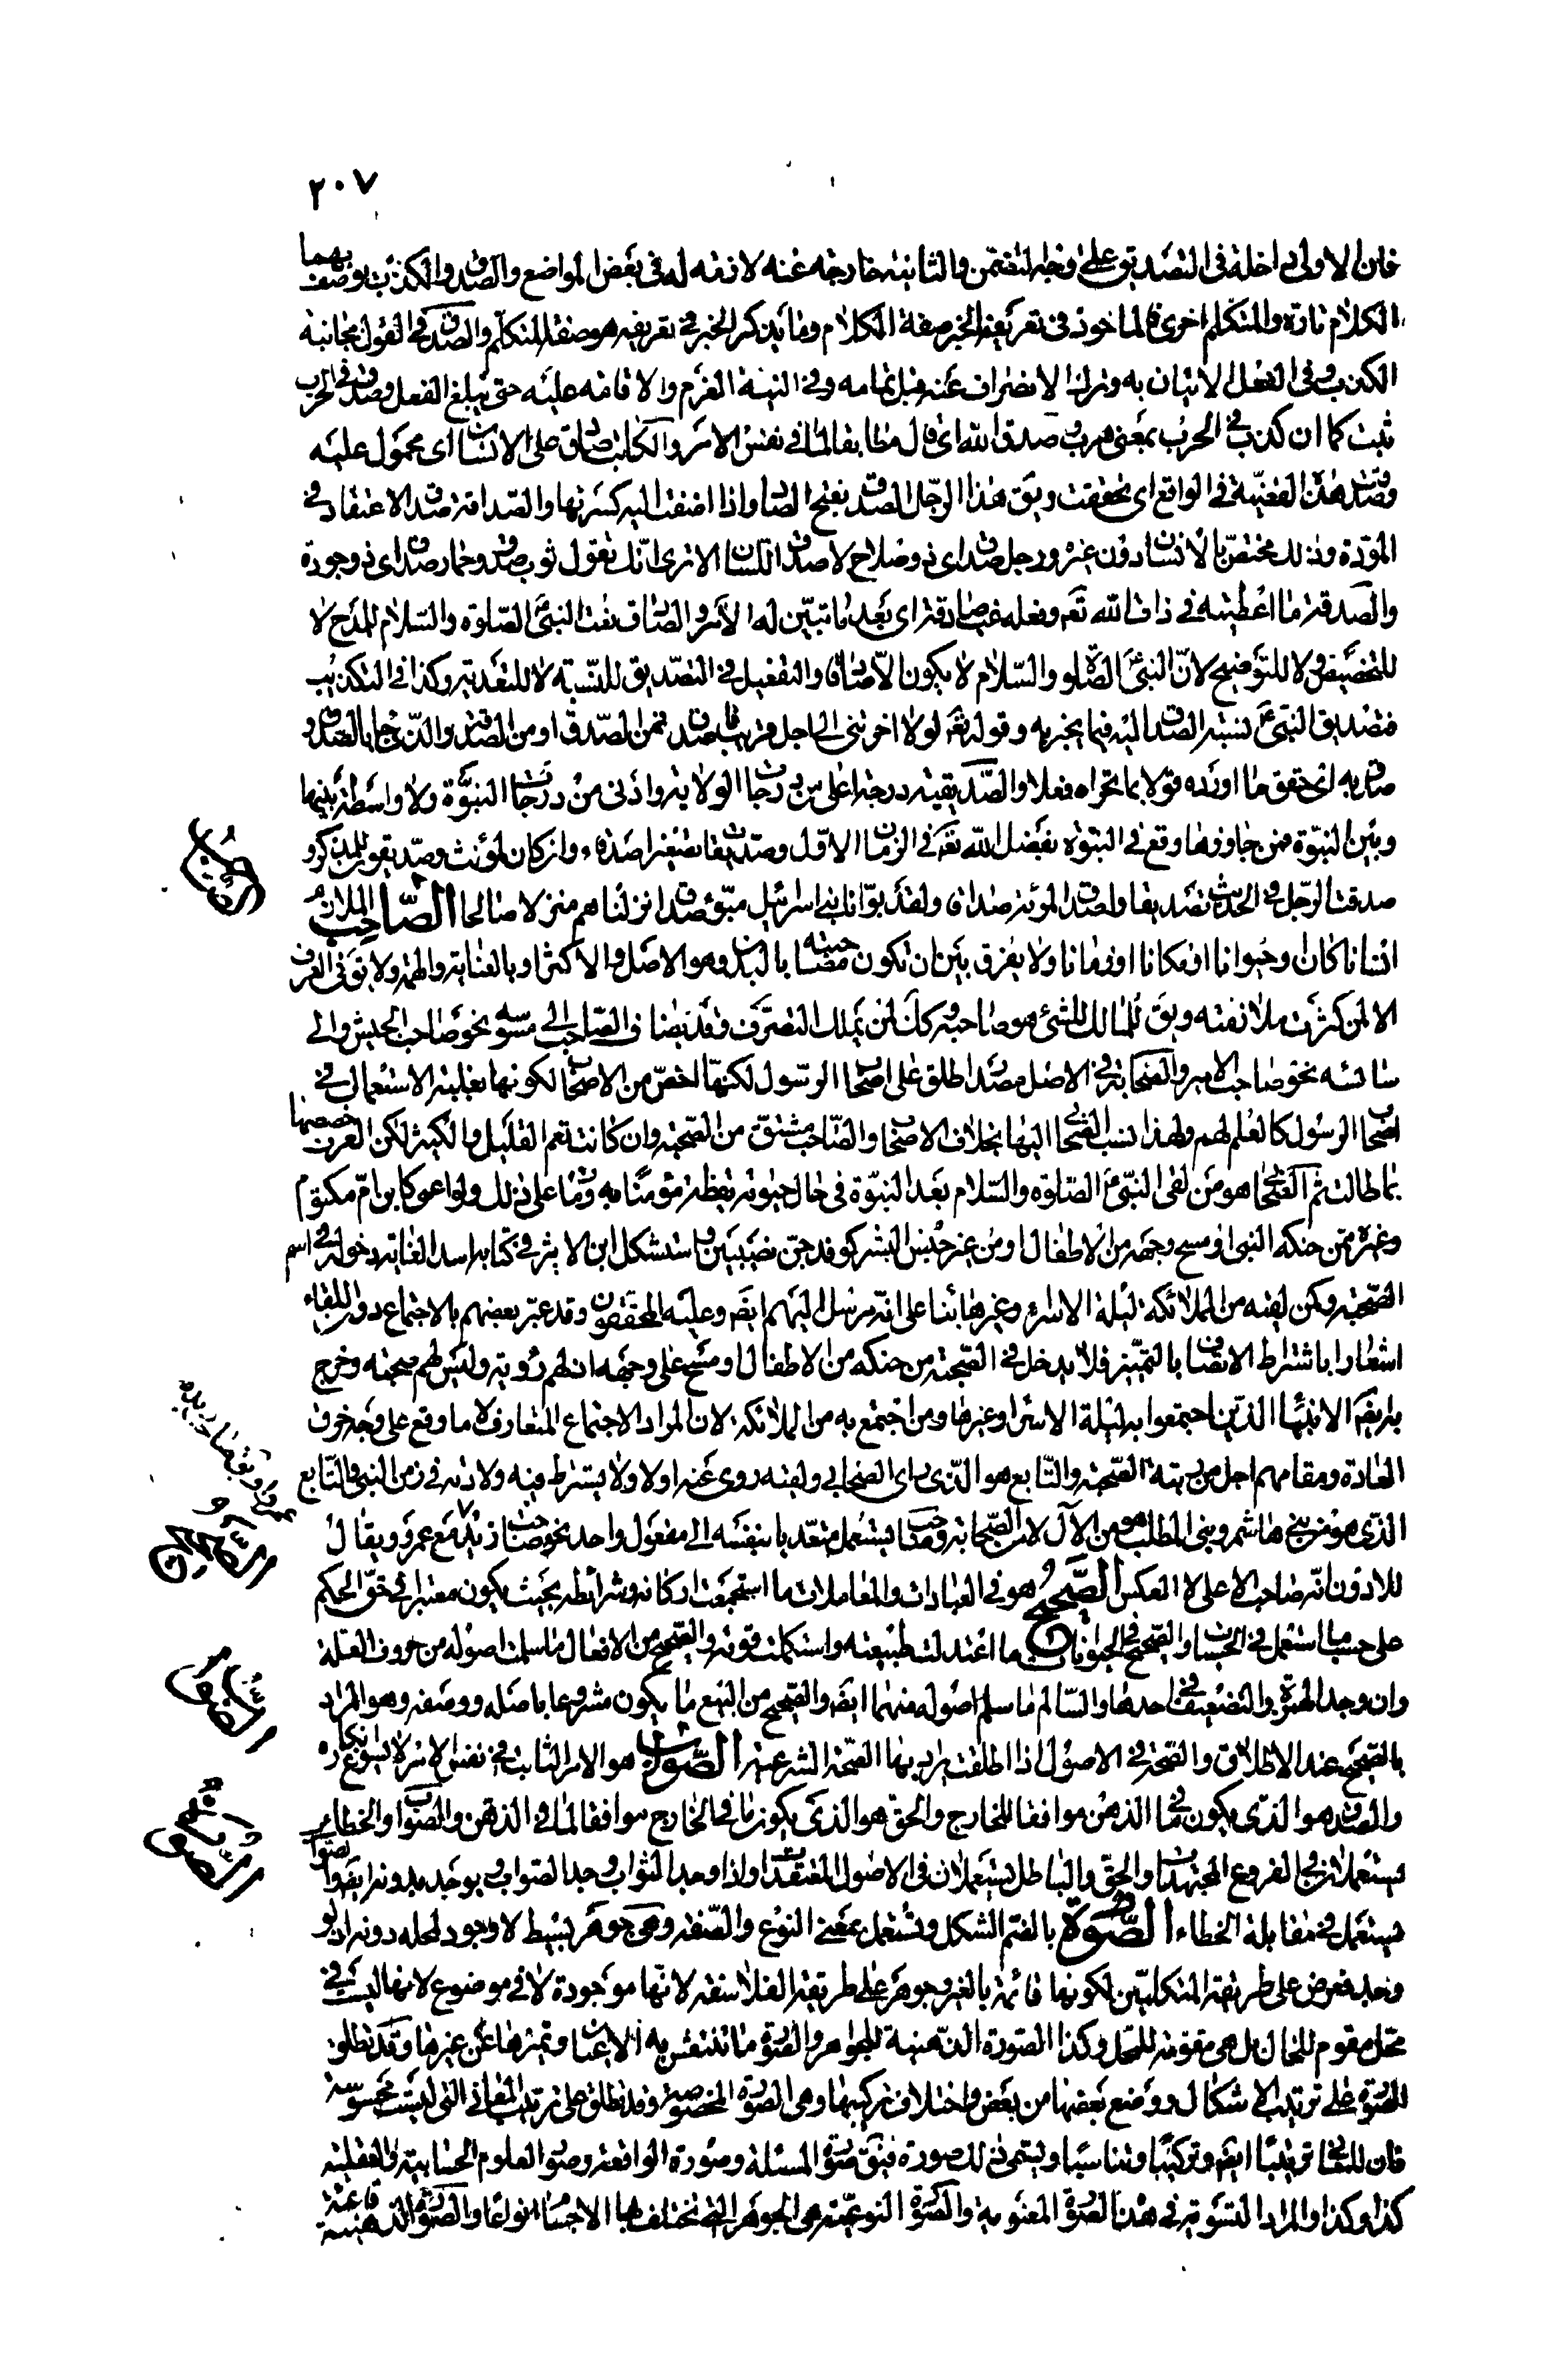 ٢٠٧
فان الاولى داخلة فى التصديق على وجه التضمن والثانية خارجة عنه لازمة له فى بعض المواضع والصدق والكذب يوصف بهما
الكلام تارة والمتكلم اخرى فالماخوذ فى تعريف الخبر صفة الكلام وما يذكر الخبر فى تعريفه هو صفة المتكلم والصدق فى القول مجانبة
الكذب وفى الفعل الاتيان به وترك الانصراف عنه قبل تمامه وفى النية العزم والاقامة عليه حتى يبلغ الفعل وصدق فى الحرب
ثبت كما ان كذب فى الحرب بمعنى هرب وصدق الله اى قال مطابقا لما فى نفس الامر والكاتب صادق على الانسان اى محمول عليه
وصدق هذه القضية فى الواقع اى تحققت ويق هذا الرجل الصدق بفتح الصاد واذا اضفت اليه كسرتها والصداقة صدق الاعتقاد فى
المودة وذلك مختص بالانسان دون غيره ورجل صدق اى ذو صلاح لا صدق اللسان الا ترى انك تقول ثوب صدق وخمار صدق اى ذو جودة
والصدقة ما اعطيته فى ذات الله تعه وفعله غب صادقة اى بعد ما تبين له الامر والصادق نعت النبى الصلوة والسلام للمدح لا
للتخصيص ولا للتوضيح لان النبى الصلوة والسلام لا يكون الا صادقا والتفعيل فى التصديق للنسبة لا للتعدية وكذا فى التكذيب
فتصديق النبى ع نسبة الصدق اليه فيما يخبر به وقوله تعه لولا اخرتنى الى اجل قريب فاصدق من الصدق او من الصدقة والذى جاء بالصدق و
صدق به اى حقق ما اورده قولا بما تحراه فعلا والصديقية درجة اعلى من درجات الولاية وادنى من درجات النبوة ولا واسطة بينها
وبين النبوة فمن جاوزها وقع فى النبوة بفضل الله تعه فى الزمان الاول وصديق تصغير اصدقاء وان كان لمؤنث وصديقون للمذكر و
صدقت الرجل فى الحديث تصديقا واصدقت المرئة صداقا ولقد بوانا بنى اسرائيل مبوء صدق انزلناهم منزلا صالحا الصاحب الملازم
انسانا كان او حيوانا او مكانا او زمانا ولا يفرق بين ان تكون مصاحبته بالبدن وهو الاصل والاكثر او بالعناية والهمة ولا يق فى العرف
الا لمن كثرت ملازمته ويق للمالك للشئ هو صاحبه وكذلك لمن يملك التصرف وقد يضاف الصاحب الى مسوسه نحو صاحب الجيش والى
سائسه نحو صاحب الامير والصحابة فى الاصل مصدر اطلق على اصحاب الرسول لكنها اخص من الاصحاب لكونها بغلبة الاستعمال فى
اصحاب الرسول كالعلم لهم ولهذا نسب الصحابى اليها بخلاف الاصحاب والصاحب مشتق من الصحبة وان كانت تعم القليل والكثير لكن العرف خصصها
بما طالت ثم الصحابى هو من لقى النبى ع الصلوة والسلام بعد النبوة فى حال حيوته يقظة مؤمنا به ومات على ذلك ولو اعمى كابن ام مكتوم
وغيره ممن حنكه النبى او مسح وجهه من الاطفال او من غير جنس البشر كوفد جن نصيبين واستشكل ابن الاثير فى كتابه اسد الغابة دخوله فى اسم
الصحبة ولكن لقيه من الملائكة ليلة الاسراء وغيرها بناء على انه مرسل اليهم ايضه وعليه المحققون وقد عبر بعضهم بالاجتماع دون اللقاء
اشعارا باشتراط الاتصاف بالتميز فلا يدخل فى الصحبة من حنكه من الاطفال او مسح على وجهه ان لهم رؤية وليس لهم صحبة وخرج
به ايضه الانبياء الذين اجتمعوا به ليلة الاسراء وغيرها ومن اجتمع به من الملائكة لان المراد الاجتماع المتعارف لا ما وقع على وجه خرق
العادة ومقامهم اجل من رتبة الصحبة والتابع هو الذى راى الصحابى ولقيه روى عنه اولا ولا يشترط فيه ولادته فى زمن النبى والتابع
الذى هو من بنى هاشم وبنى المطلب هو من الآل لا من الصحابة وصاحب يستعمل متعديا بنفسه الى مفعول واحد نحو صاحبت زيدا مع عمرو ويقال
للادون انه صاحب الاعلى لا العكس الصحيح هو فى العبادات والمعاملات ما استجمعت اركانه وشرائطه بحيث يكون معتبرا فى حق الحكم
على حسب ما استعمل فى الحسيات والصحيح فى الحيوانات ما اعتدلت طبيعته واستكملت قوته والصحيح من الافعال ما سلمت اصوله من حروف العلة
وان وجد الهمزة والتضعيف فى احدها والسالم ما سلم اصوله منهما ايضه والصحيح من البيع ما يكون مشروعا باصله ووصفه وهو المراد
بالصحيح عند الاطلاق والصحة فى الاصول اذا اطلقت يراد بها الصحة الشرعية الصواب هو الامر الثابت فى نفس الامر لا يسوغ انكاره
والصدق هو الذى يكون ما فى الذهن موافقا للخارج والحق هو الذى يكون ما فى الخارج موافقا لما فى الذهن والصواب والخطاء
يستعملان فى الفروع المجتهدات والحق والباطل يستعملان فى الاصول المعتقدات واذا وجد الثواب وجد الصواب وبوجد بدونه ايضه والصواب
يستعمل فى مقابلة الخطاء الصورة بالضم الشكل وتستعمل بمعنى النوع والصفة وهى جوهر بسيط لا وجود لمحله دونه اذ لو
وجد فعرض على طريقة المتكلمين لكونها قائمة بالغير وجوهر على طريقة الفلاسفة لانها موجودة لا فى موضوع لانها ليست فى
محل مقوم للحال بل هى مقومة للمحل وكذا الصورة الذهنية للجواهر والصورة ما تنتقش به الاعيان وتميزها عن غيرها وقد تطلق
الصورة على ترتيب الاشكال ووضع بعضها من بعض واختلاف تركيبها وهى الصورة المخصوصة وقد تطلق على ترتيب المعانى التى ليست محسوسة
فان للمعانى ترتيبا ايضه وتركيبا وتناسبا ويسمى ذلك صورة فيق صورة المسئلة وصورة الواقعة وصورة العلوم الحسابية والعقلية
كذا وكذا والمراد التسوية فى هذه الصورة المعنوية والصورة النوعية هى الجوهر التى تختلف بها الاجسام انواعا والصورة الذهنية قائمة
الصاحب
الصحيح
الصواب
الصورة